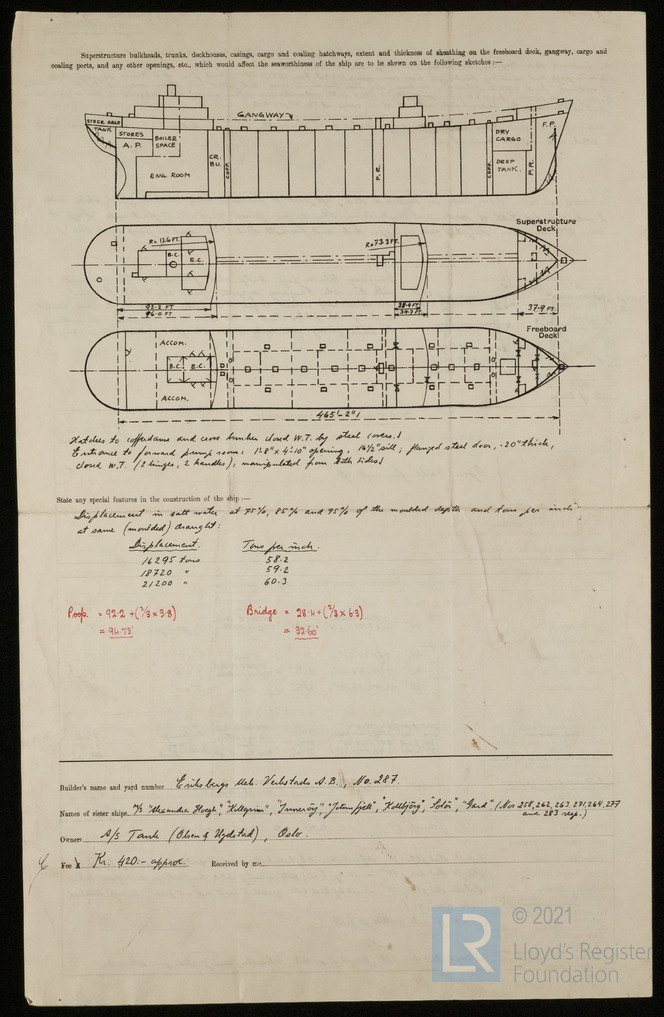 Superstructure bulkheads, trunks, deckhouses, casings, cargo and coaling hatchways, extent and thickness of sheathing on the freeboard deck, gangway, cargo and
coaling ports, and any other openings, etc., which would affect the seaworthiness of the ship are to be shewn on the following sketches:—
GANGWAY
STEER GEAR
TANK
STORES
A. P.
BOILER
SPACE
ENG. ROOM
CR.
BU.
COFF.
P. R.
COFF.
DRY
CARGO
DEEP
TANK.
P. R.
F. P.
Superstructure
Deck
R= 126 FT.
R= 73.3 FT.
B.C.
E.C.
92.2 FT
96.0 FT
28.4 FT
34.7 FT
37.9 FT.
Freeboard
Deck
ACCOM.
B.C.
E.C.
ACCOM.
465'-2"
Hatches to cofferdams and cross bunker closed W.T. by steel covers.
Entrance to forward pump room: 1'-8" x 4'-10" opening, 16½" sill, flanged steel door, .20" thick,
closed W.T. (2 hinges, 2 handles), manipulated from both sides
State any special features in the construction of the ship:—
Displacement in salt water at 75%, 85% and 95% of the moulded depth and tons per inch
at same (moulded) draught:
Displacement. Tons per inch.
16295 tons 58.2
18720 " 59.2
21200 " 60.3
Poop. = 92.2 + (2/3 x 3.8)
= 94.73'
Bridge = 28.4 + (2/3 x 6.3)
= 32.60'
Builder's name and yard number Eriksbergs Mek. Verkstads A.B., No. 287.
Names of sister ships M/S "Alexandra Hoegh", "Kollgrim", "Innerøy", "Jotunfjell", "Kollbjørg", "Solør", "Gard" (Nos 258, 262, 263, 271, 264, 277
and 283 resp.)
Owners A/S Tank (Olsen & Ugelstad), Oslo.
Fee Kr. 420:- approx. Received by me
LR
© 2021
Lloyd's Register
Foundation